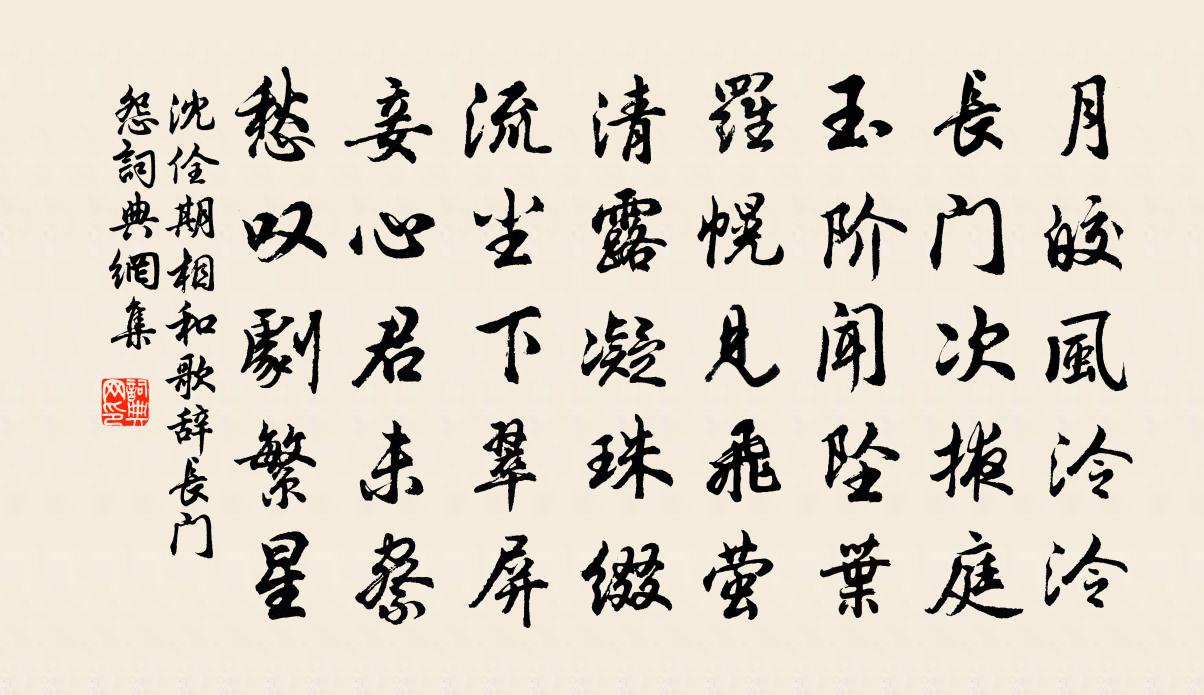 月皎風泠泠
長门次掖庭
玉阶聞坠葉
羅幌見飛萤
清露凝珠缀
流尘下翠屏
妾心君未察
愁叹劇繁星
沈佺期相和歌辞長门
怨詞典網集
詞典
网印